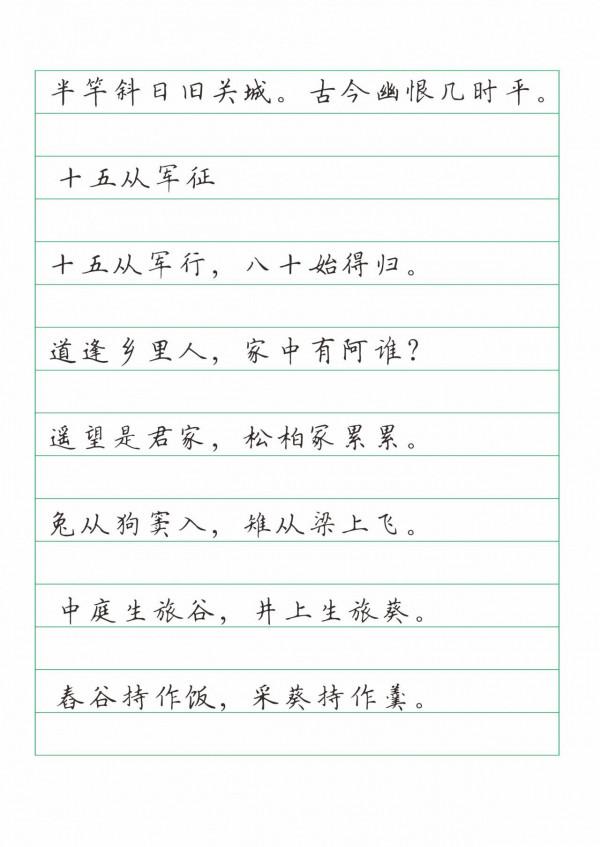 半竿斜日旧关城。古今幽恨几时平。
十五从军征
十五从军行，八十始得归。
道逢乡里人，家中有阿谁？
遥望是君家，松柏冢累累。
兔从狗窦入，雉从梁上飞。
中庭生旅谷，井上生旅葵。
舂谷持作饭，采葵持作羹。